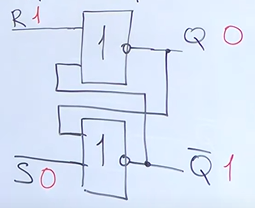 R 1
1
Q 0
1
S 0
Q̅ 1